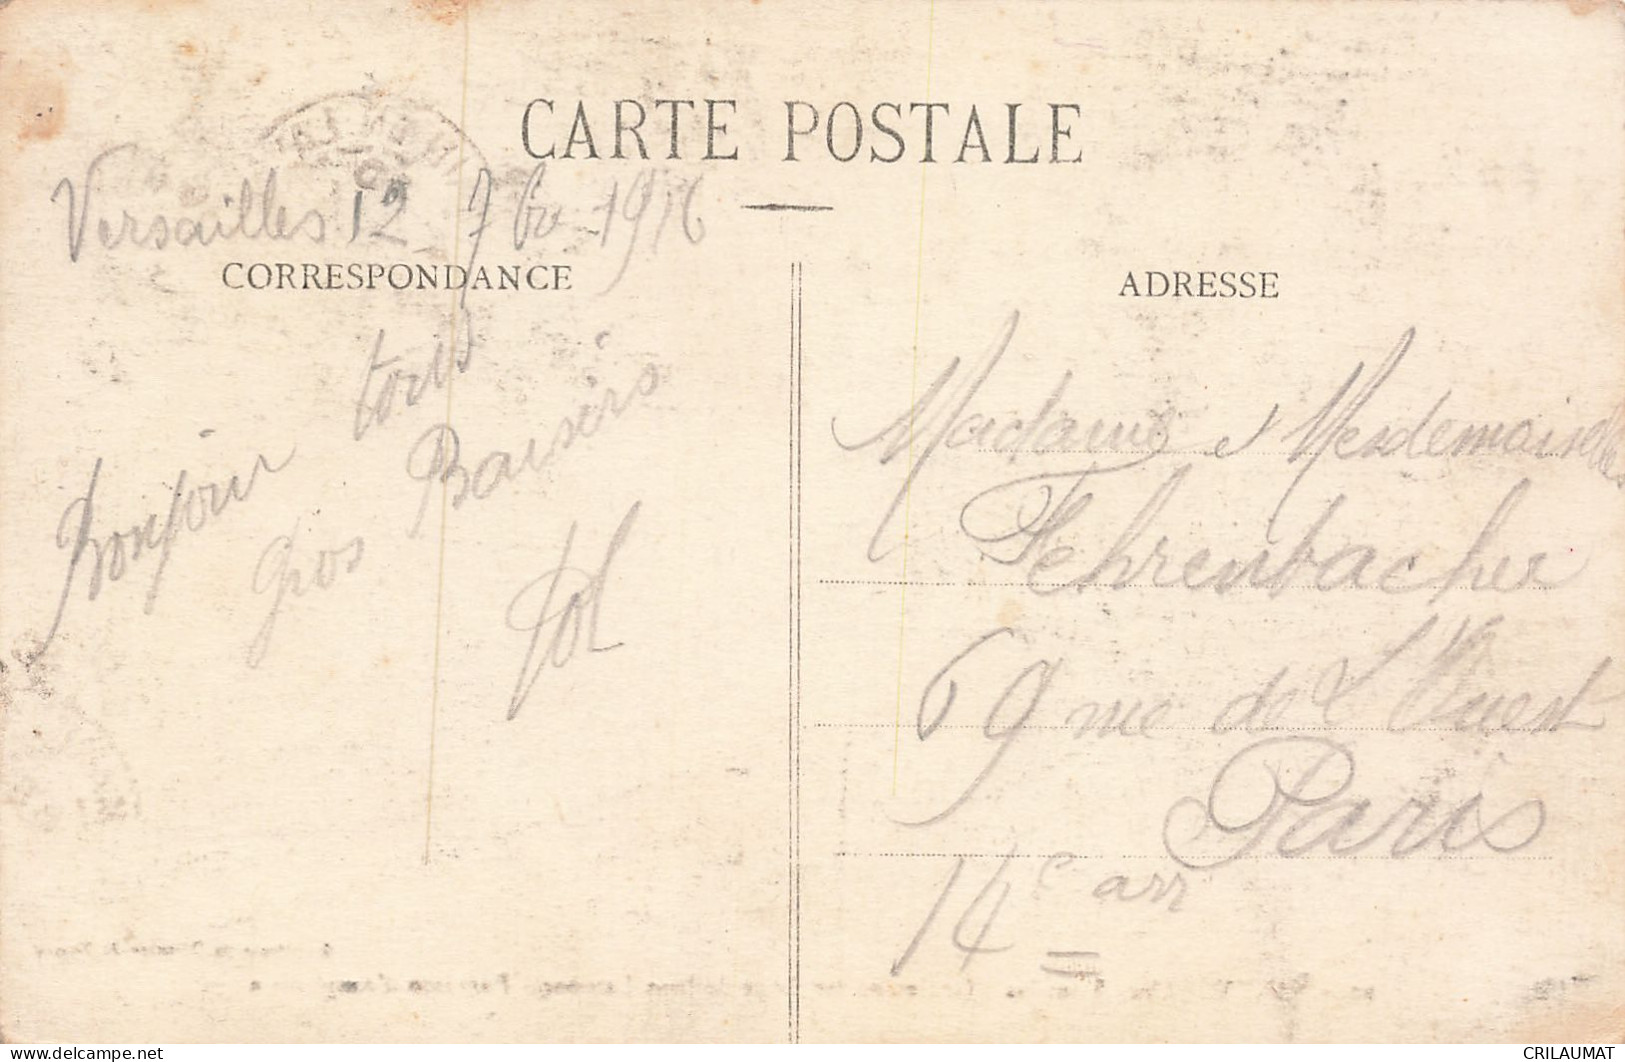 CARTE POSTALE
Versailles 12 7bre 1916
CORRESPONDANCE
Bonjour tous
Gros Baisers
ADRESSE
Madame et Mesdemoiselles
Fehrenbacher
69 rue de L'Ouest
Paris
14e arr
delcampe.net
CRILAUMAT